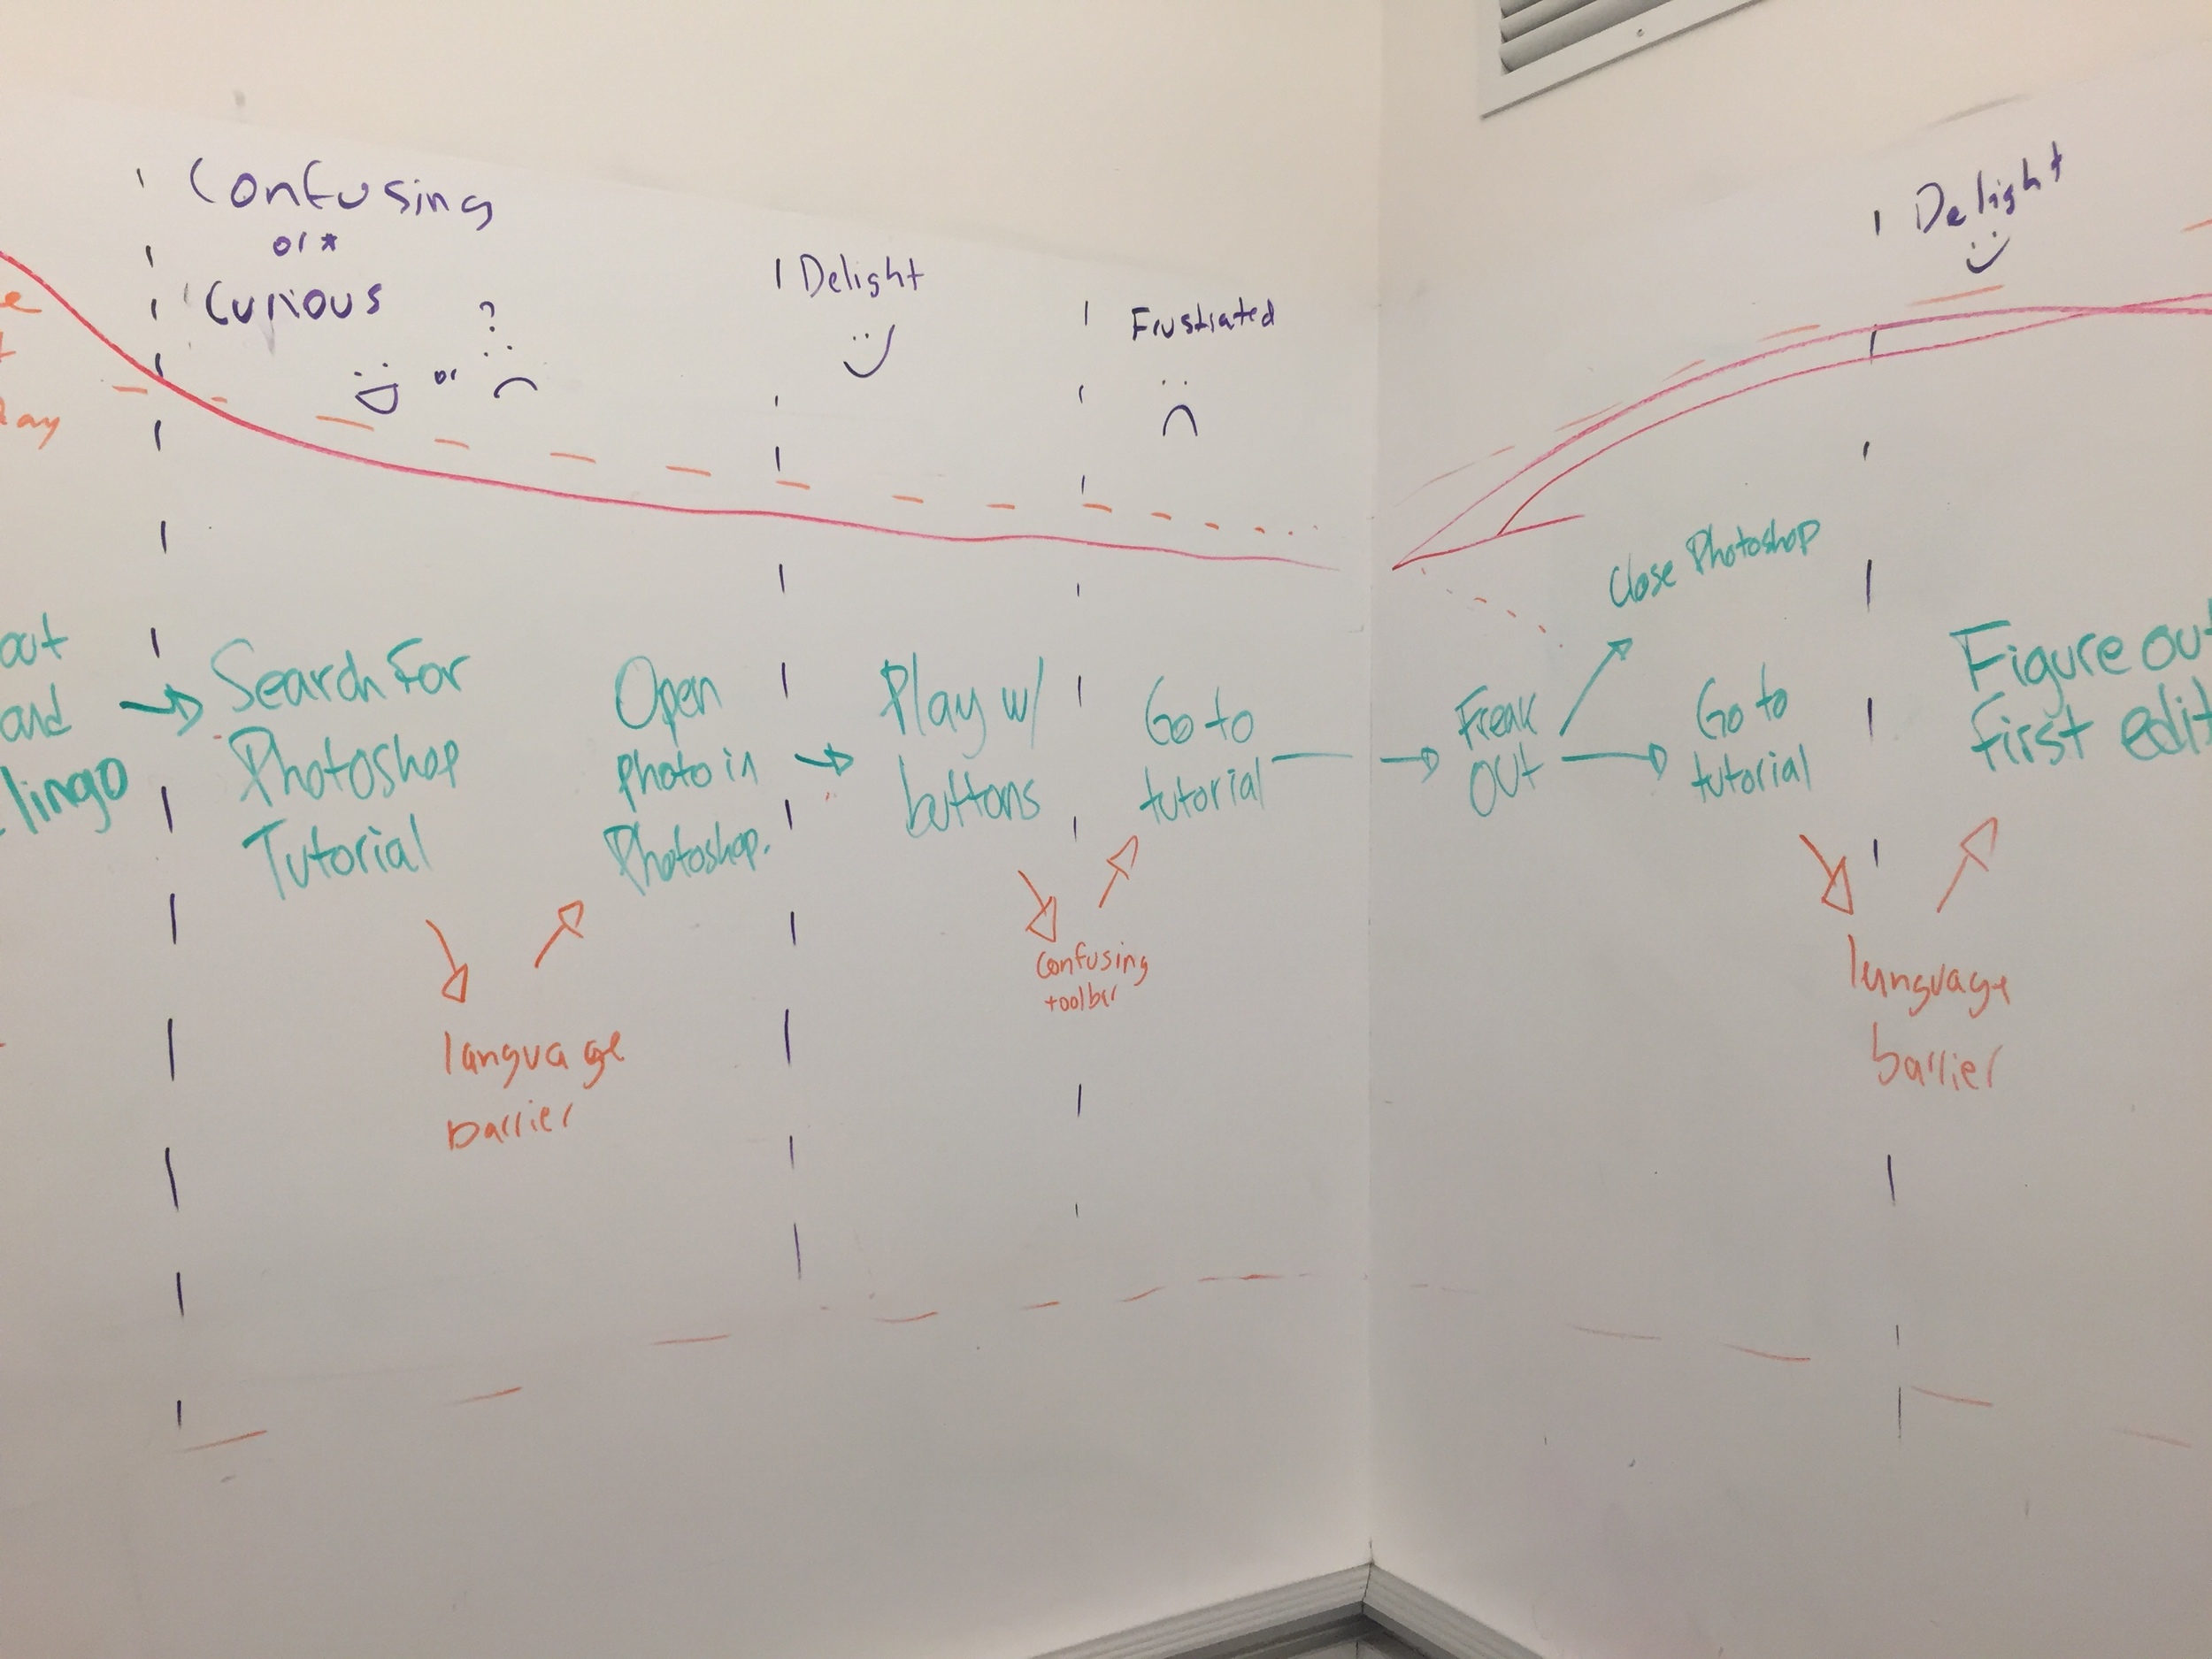 Confusing
or *
Curious
?
or
Delight
Frustrated
Delight
e
t
ay
out
and
lingo
Search For
Photoshop
Tutorial
Open
photo in
Photoshop.
Play w/
buttons
Go to
tutorial
Freak
out
Close Photoshop
Go to
tutorial
Figure out
first edit
language
barrier
Confusing
toolbar
language
barrier